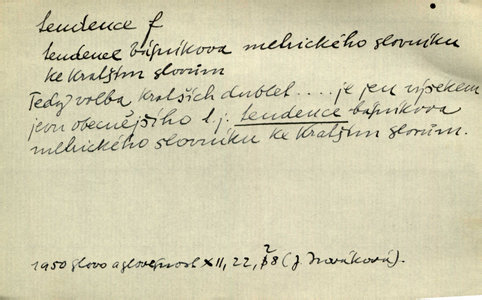 tendence f
tendence básníkova metrického slovníku
ke kratším slovům
Tedy volba kratších dublet .... je jen výsekem
jevu obecnějšího t.j. tendence básníkova
metrického slovníku ke kratším slovům.
1950 Slovo a slovesnost XII, 22, 28 (J Nováková).